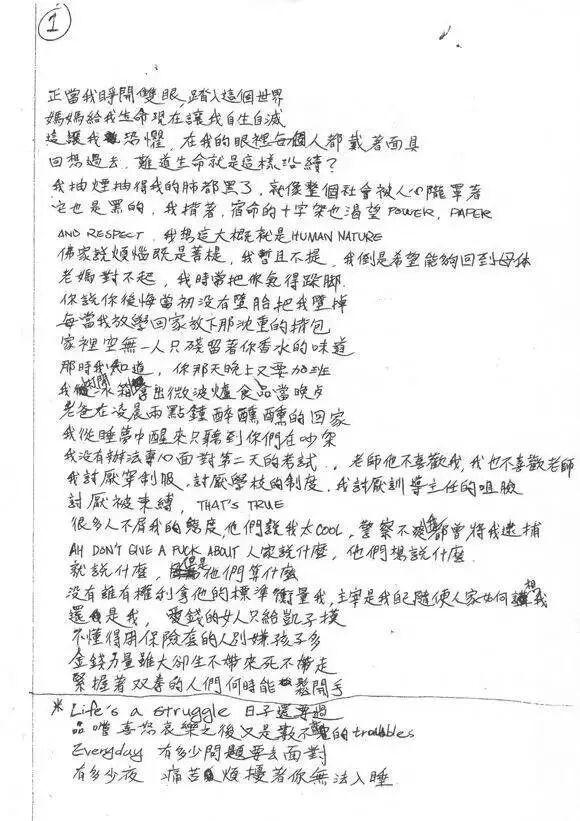 1
正當我睜開雙眼,踏入這個世界
媽媽給我生命現在讓我自生自滅
這讓我恐懼,在我的眼裡每個人都戴著面具
回想過去,難道生命就是這樣沿續?
我抽煙抽得我的肺都黑了,就像整個社會被人心隴罩著
它也是黑的,我揹著,宿命的十字架也渴望POWER, PAPER
AND RESPECT,我想這大概就是HUMAN NATURE
佛家說煩惱既是菩提,我暫且不提,我倒是希望能夠回到母体
老媽對不起,我時常把你氣得跺腳
你說你後悔當初沒有墮胎把我墮掉
每當我放學回家放下那沈重的揹包
家裡空無一人只殘留著你香水的味道
那時我知道,你那天晚上又要加班
我打開冰箱拿出微波爐食品當晚点
老爸在凌晨兩點鐘醉醺醺的回家
我從睡夢中醒來只聽到你們在吵架
我沒有辦法專心面對第二天的考試..老師他不喜歡我,我也不喜歡老師
我討厭穿制服,討厭學校的制度,我討厭訓導主任的咀臉
討厭被束縛,THAT'S TRUE
很多人不屑我的態度,他們說我太COOL,警察不爽都曾將我逮捕
AH DON'T GIVE A FUCK ABOUT 人家說什麼,他們想說什麼
就說什麼,但是他們算什麼
沒有誰有權利拿他的標準衡量我,主宰是我自己隨便人家如何想我
還是我,愛錢的女人只給凱子摸
不懂得用保險套的人別嫌孩子多
金錢力量雖大卻生不帶來死不帶走
緊握著双拳的人們何時能鬆開手
* Life's a struggle 日子還要過
品嚐喜怒哀樂之後又是數不盡的troubles
Everyday 有多少問題要去面對
有多少夜 痛苦煩擾著你無法入睡